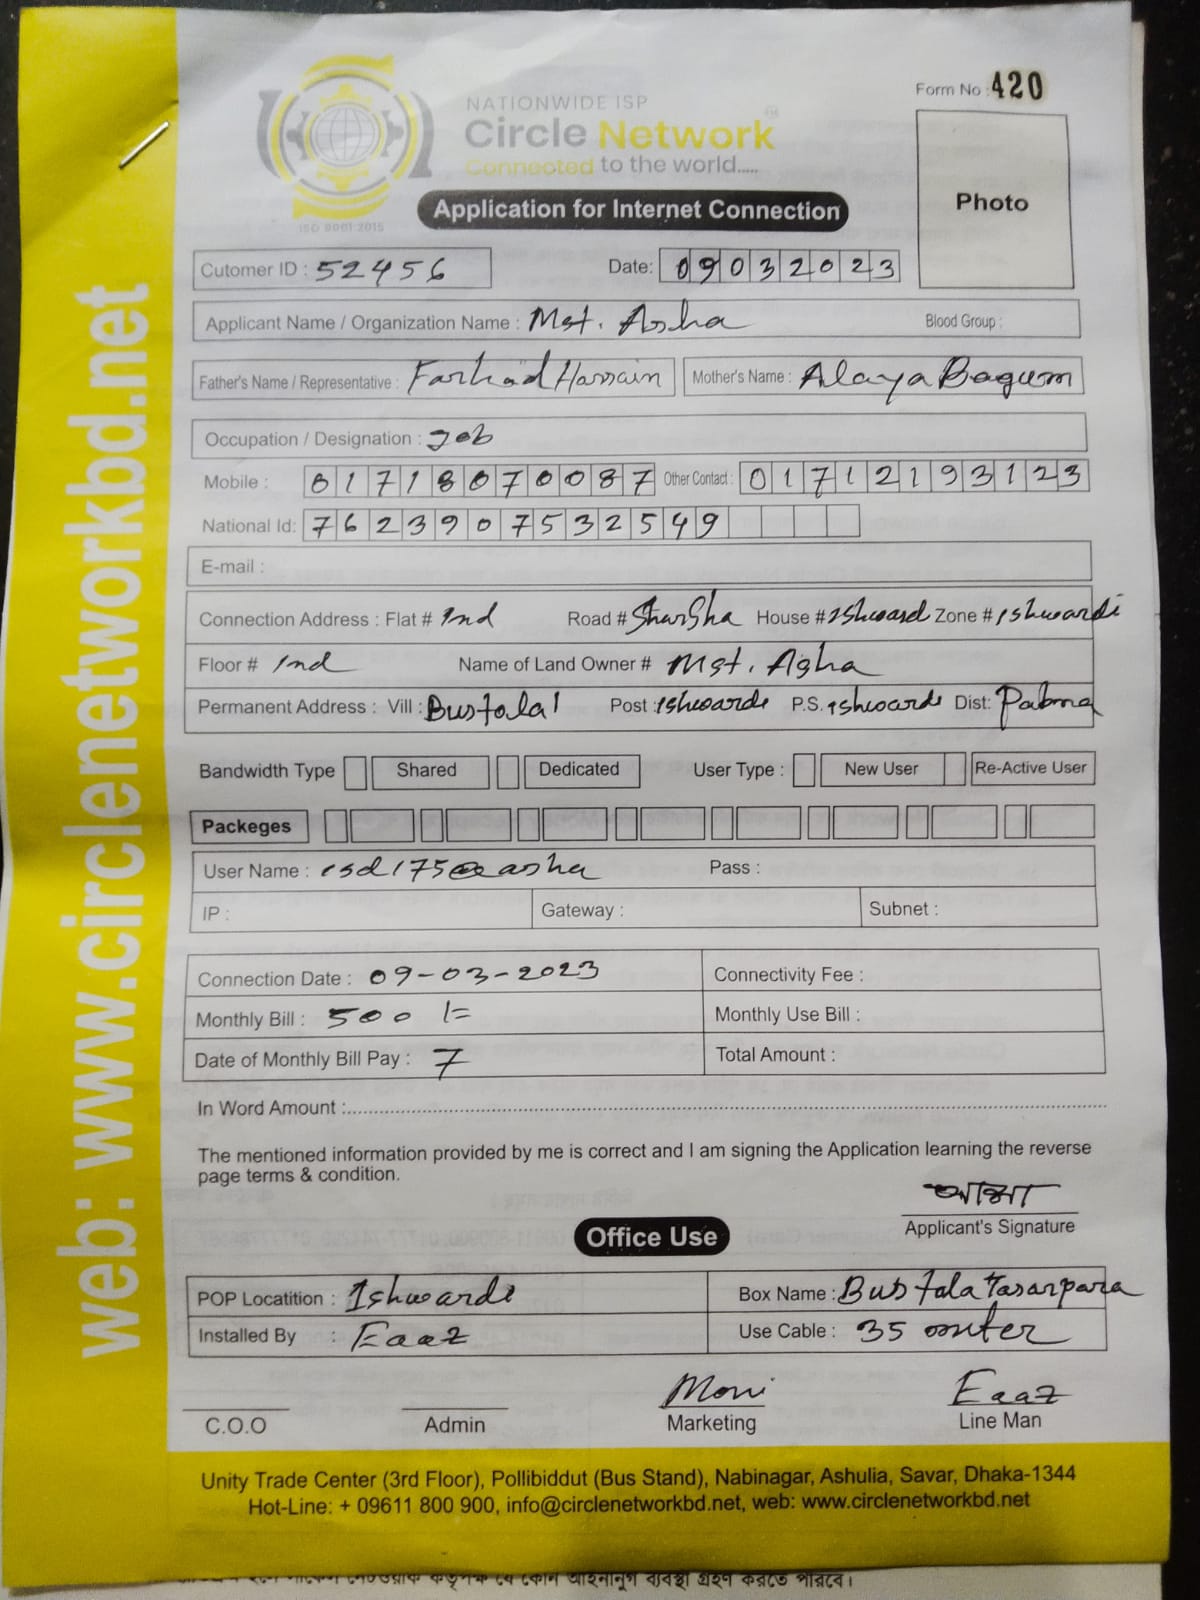 web: www.circlenetworkbd.net
Form No : 420
NATIONWIDE ISP
Circle Network
Connected to the world.....
ISO 9001:2015
Application for Internet Connection
Photo
Cutomer ID : 52456
Date: 09032023
Applicant Name / Organization Name : Mst. Asha
Blood Group :
Father's Name / Representative : Farhad Hossain
Mother's Name : Alaya Bagum
Occupation / Designation : Job
Mobile : 01718070087 Other Contact : 01712193123
National Id: 7623907532549
E-mail :
Connection Address : Flat # 2nd Road # Sharsha House # Ishward Zone # Ishwardi
Floor # 2nd Name of Land Owner # Mst. Asha
Permanent Address : Vill : Bustolal Post : Ishwarde P.S. Ishwarde Dist: Pabna
Bandwidth Type Shared Dedicated User Type : New User Re-Active User
Packeges
User Name : isd175@asha Pass :
IP : Gateway : Subnet :
Connection Date : 09-03-2023 Connectivity Fee :
Monthly Bill : 500 /= Monthly Use Bill :
Date of Monthly Bill Pay : 7 Total Amount :
In Word Amount :
The mentioned information provided by me is correct and I am signing the Application learning the reverse
page terms & condition.
আশা
Applicant's Signature
Office Use
POP Locatition : Ishwarde Box Name : Bustala Tasarpara
Installed By : Eaaz Use Cable : 35 miter
Moni Eaaz
C.O.O Admin Marketing Line Man
Unity Trade Center (3rd Floor), Pollibiddut (Bus Stand), Nabinagar, Ashulia, Savar, Dhaka-1344
Hot-Line: + 09611 800 900, info@circlenetworkbd.net, web: www.circlenetworkbd.net
যে কোন আইনানুগ ব্যবস্থা গ্রহণ করতে পারবে।